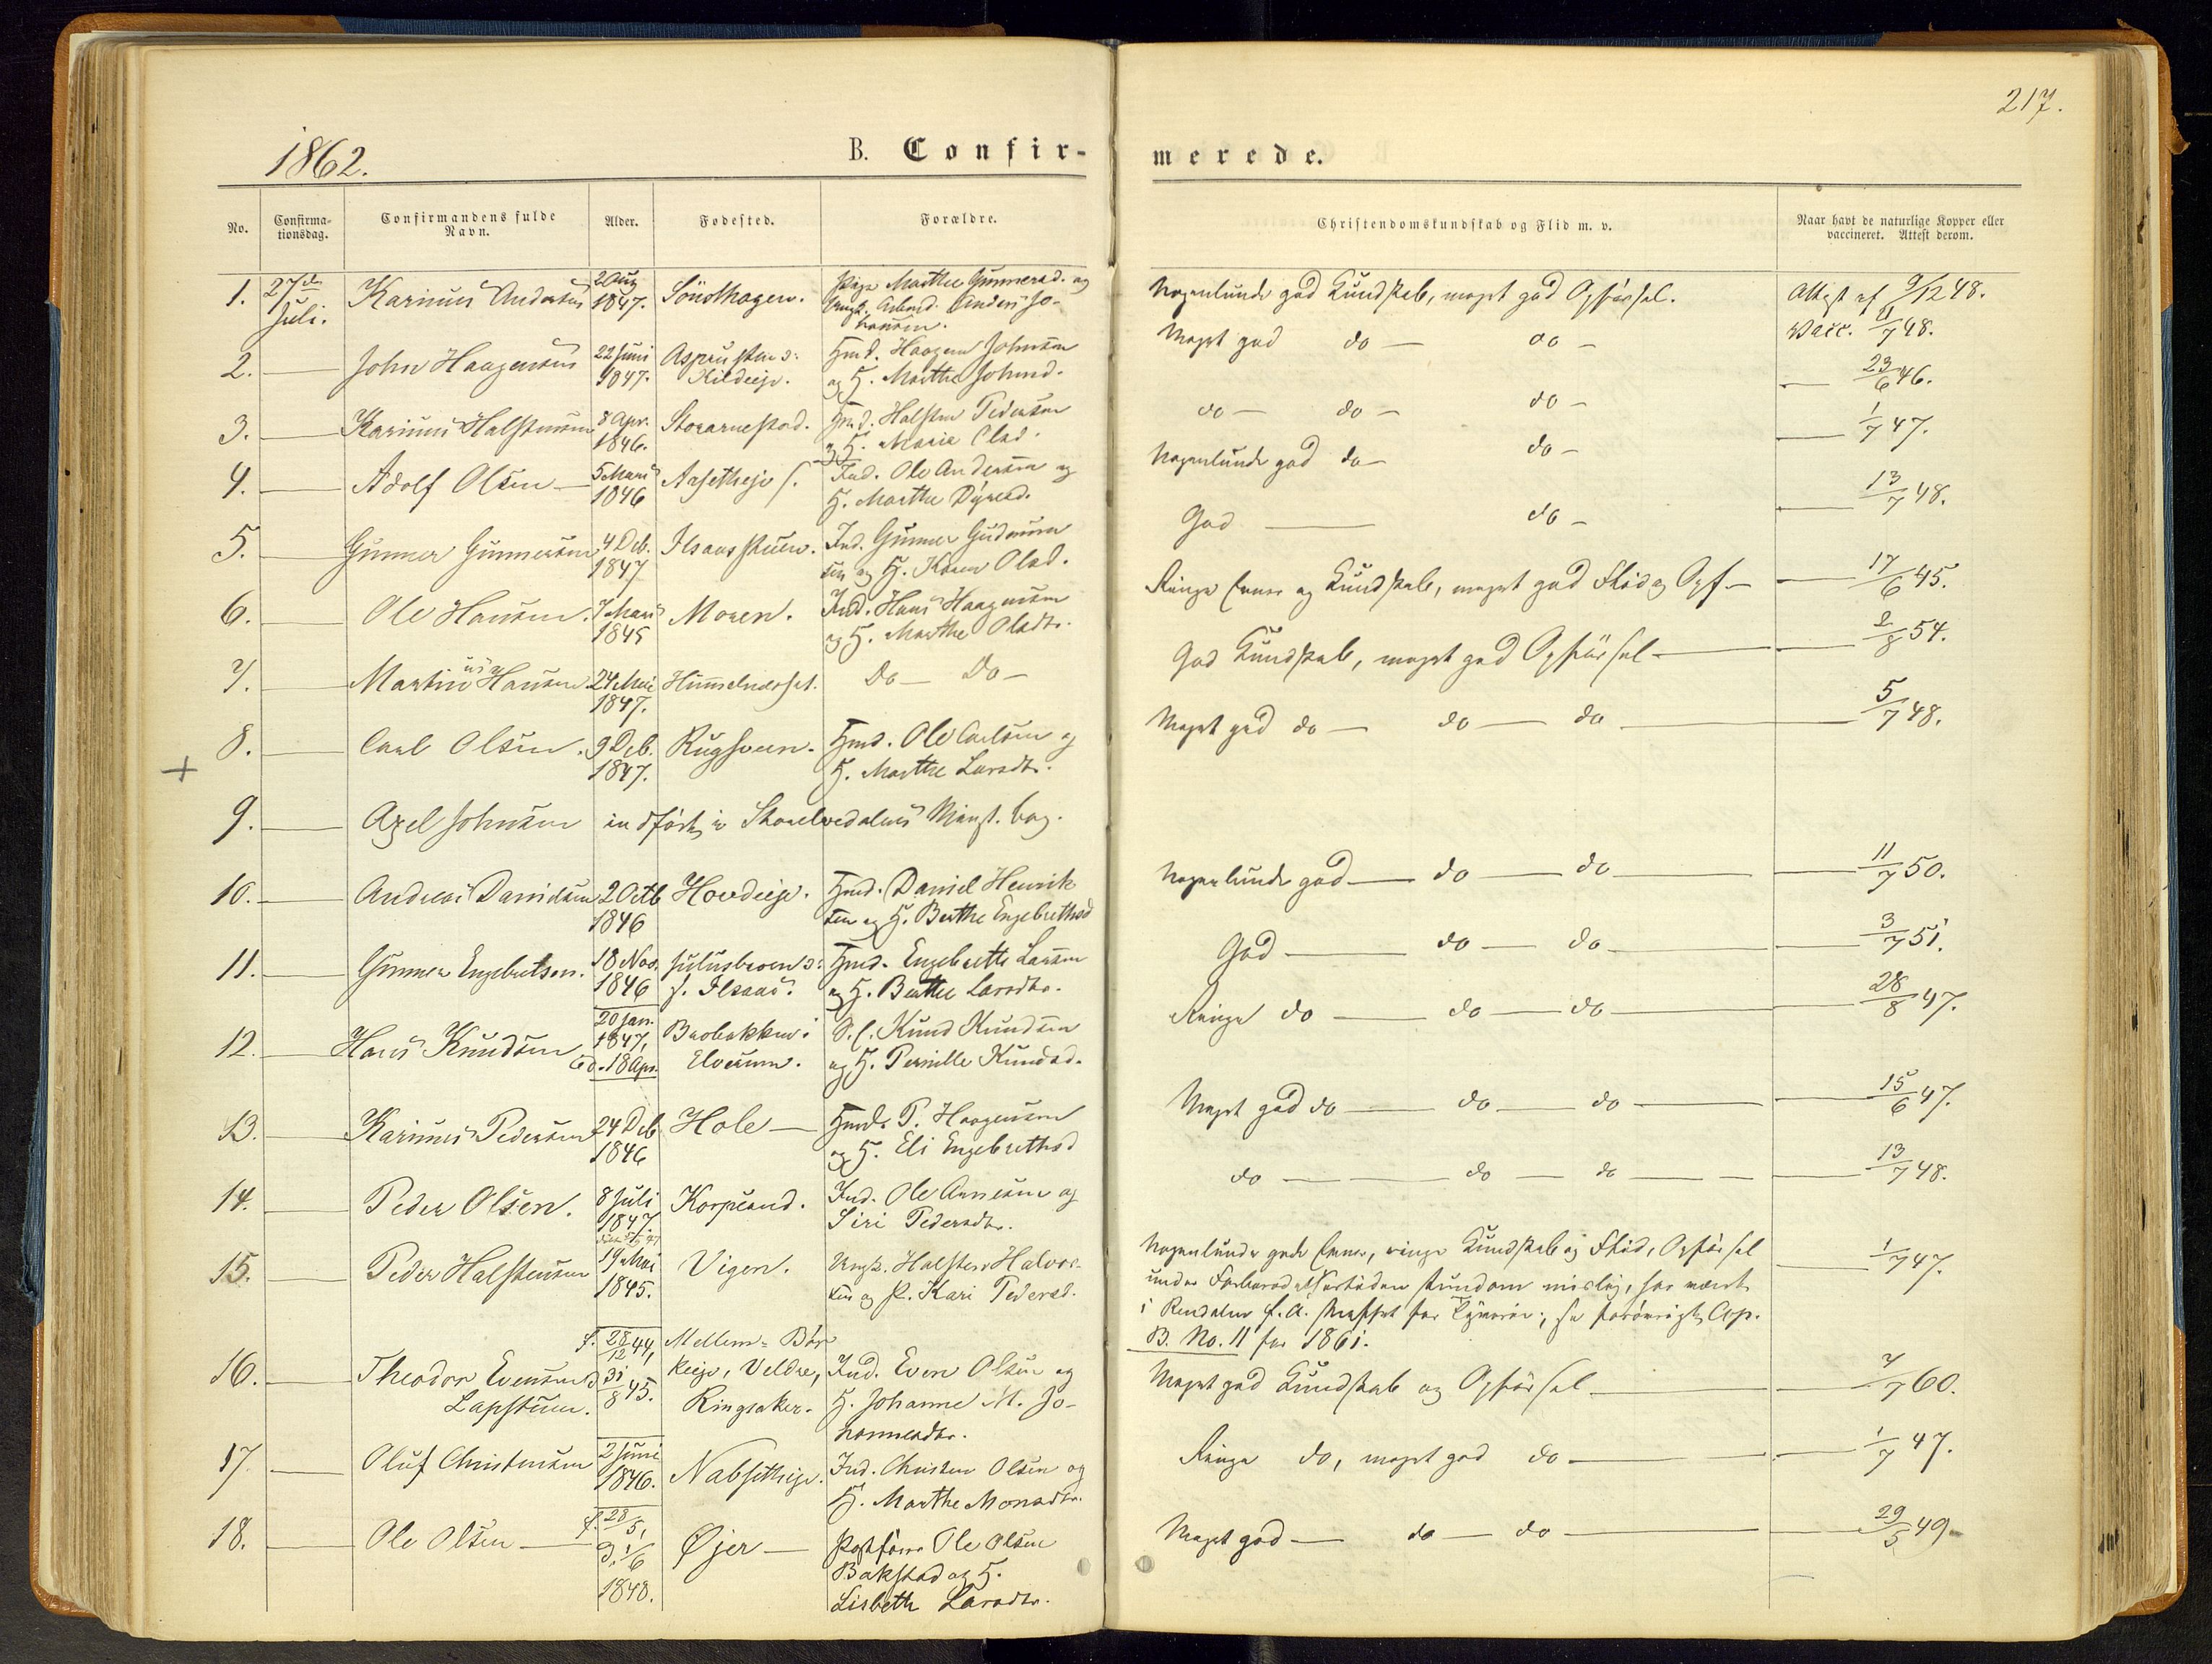 217.
1862.
B. Confir-
merede.
No.
Confirma-
tionsdag.
Confirmandens fulde
Navn.
Alder.
Fødested.
Forældre.
Christendomskundskab og Flid m. v.
Naar havt de naturlige Kopper eller
vaccineret. Attest derom.
1. 27de Karinus Anders 2 Aug Sönsthagen. Pige Marthe Gunnersd. og
Juli. 1847. Ungk. Anders Jo-
hansen.
Nogenlunde god Kundskab, meget god Opførsel. Attest af 9/12 48.
2. John Haagensen 22 Juni Hmd. Haagen Johnsen
1847. Kildeeje. og H. Marthe Johnsd.
Meget god do — do — Vacc. 11/7 48.
3. Karinus Halstensen 8 Apr. Storarnestad. Hmd. Halsten Pedersen
1846. og H. Marie Olsd.
do — do — do — 23/6 46.
4. Adolf Olsen — 5 Mars Aasetheje Ind. Ole Andersen og
1846 H. Marthe
Nogenlunde god do — do — 1/7 47.
5. Gunner Gunnersen 4 Deb. Ilsaasstuen. Ind. Gunner Gudmun
1847 sen og H. Karen Olsd.
God — do — 13/7 48.
6. Ole Hansen. 7 Mars Moren. Ind. Hans Haagensen
1845 og H. Marthe Olsdtr.
Ringe Evner og Kundskab, meget god Flid og Opf. — 17/6 45.
7. Martinus Hansen 24 Mai Do — Do —
1847.
God Kundskab, meget god Opførsel — 2/8 54.
8. Carl Olsen. 9 Deb. Rugsveen. Hmd. Ole Carlsen og
1847. H. Marthe Larsdtr.
Meget god do — do — do — 5/7 48.
9. Axel Johnsen indført i Storelvedalens Minist. bog.
10. Andreas Danielsen 2 Octb Hovdeeje. Hmd. Daniel Henrik
1846 sen og H. Berthe Engebrethsd
Nogenlunde god — do — do — 11/7 50.
11. Gunner Engebretsen. 18 Nov. Hmd. Engebreth Larsen
1846 og H. Berthe Larsdtr.
God — do — do — 3/7 51.
12. Hans Knudsen 20 Jan. Bakken i S. E. Knud Knudsen
1847, Elverum. og H. Pernille Knudsd.
18 Apr.
Ringe do — do — do — 28/8 47.
13. Karinus Pedersen 24 Deb Hole — Hmd. P. Haagensen
1846 og H. Eli Engebrethsd
Meget god do — do — do — 15/6 47.
14. Peder Olsen. 8 Juli Korpesand. Ind. Ole Arnesen og
1847. Siri Pedersdtr.
do — do — do — 13/7 48.
15. Peder Halstensen 19 Mai Vigen. Ungk. Halsten Halvor-
1845. sen og P. Kari Pedersd.
Nogenlunde gode Evner, ringe Kundskab og Flid, Opførsel 1/7 47.
under stundom mislig, har været
i Rendalen f. A. straffet for Tyveri; se forøvrigt Cop.
B. No. 11 for 1861.
16. Theodor Evensen f. 28/12 44, Mellem-Bør
Lapstuen. d. 31/8 45. keeje, Veldre, Ind. Even Olsen og
Ringsaker. H. Johanne M. Jo-
hannesdtr.
Meget god Kundskab og Opførsel — 7/7 60.
17. Oluf Christensen 2 Juni Ind. Christen Olsen og
1846. H. Marthe Monsdtr.
Ringe do, meget god do — 1/7 47.
18. Ole Olsen — f. 28/5, Øjer — Postfører Ole Olsen
d. 1/6 Bakstad og H.
1848. Lisbeth Larsdtr.
Meget god — do — do — 29/5 49.